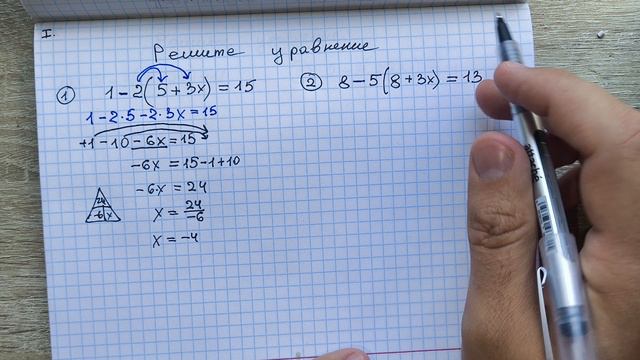 I.
Решите уравнение
1 1 - 2(5 + 3x) = 15
1 - 2·5 - 2·3x = 15
+1 - 10 - 6x = 15
-6x = 15 - 1 + 10
-6·x = 24
24
-6 x
x = 24/-6
x = -4
2 8 - 5(8 + 3x) = 13
attaché